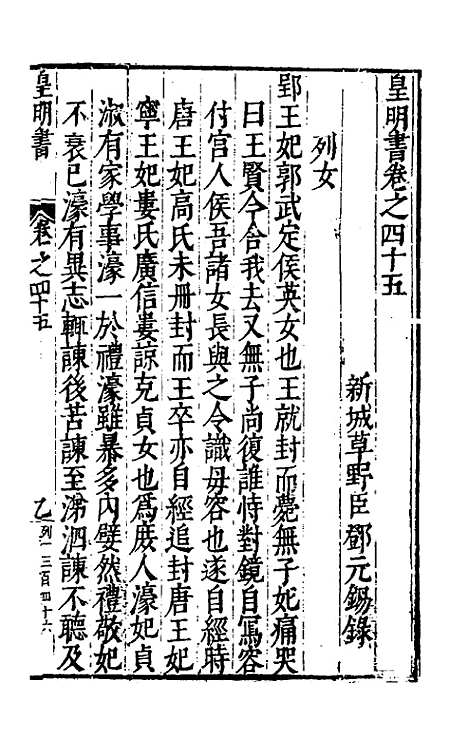 皇明書卷之四十五
新城草野臣鄧元錫錄
列女
郢王妃郭武定侯英女也王就封而薨無子妃痛哭
曰王賢今舍我去又無子尚復誰恃對鏡自寫容
付宫人俟吾諸女長與之令識母容也遂自經時
唐王妃高氏未冊封而王卒亦自經追封唐王妃
寧王妃婁氏廣信婁諒克貞女也爲庻人濠妃貞
淑有家學事濠一於禮濠雖暴多内嬖然禮敬妃
不衰已濠有異志輒諫後苦諫至涕泗諫不聽及
皇明書
卷之四十五
乙
列一三百四十六